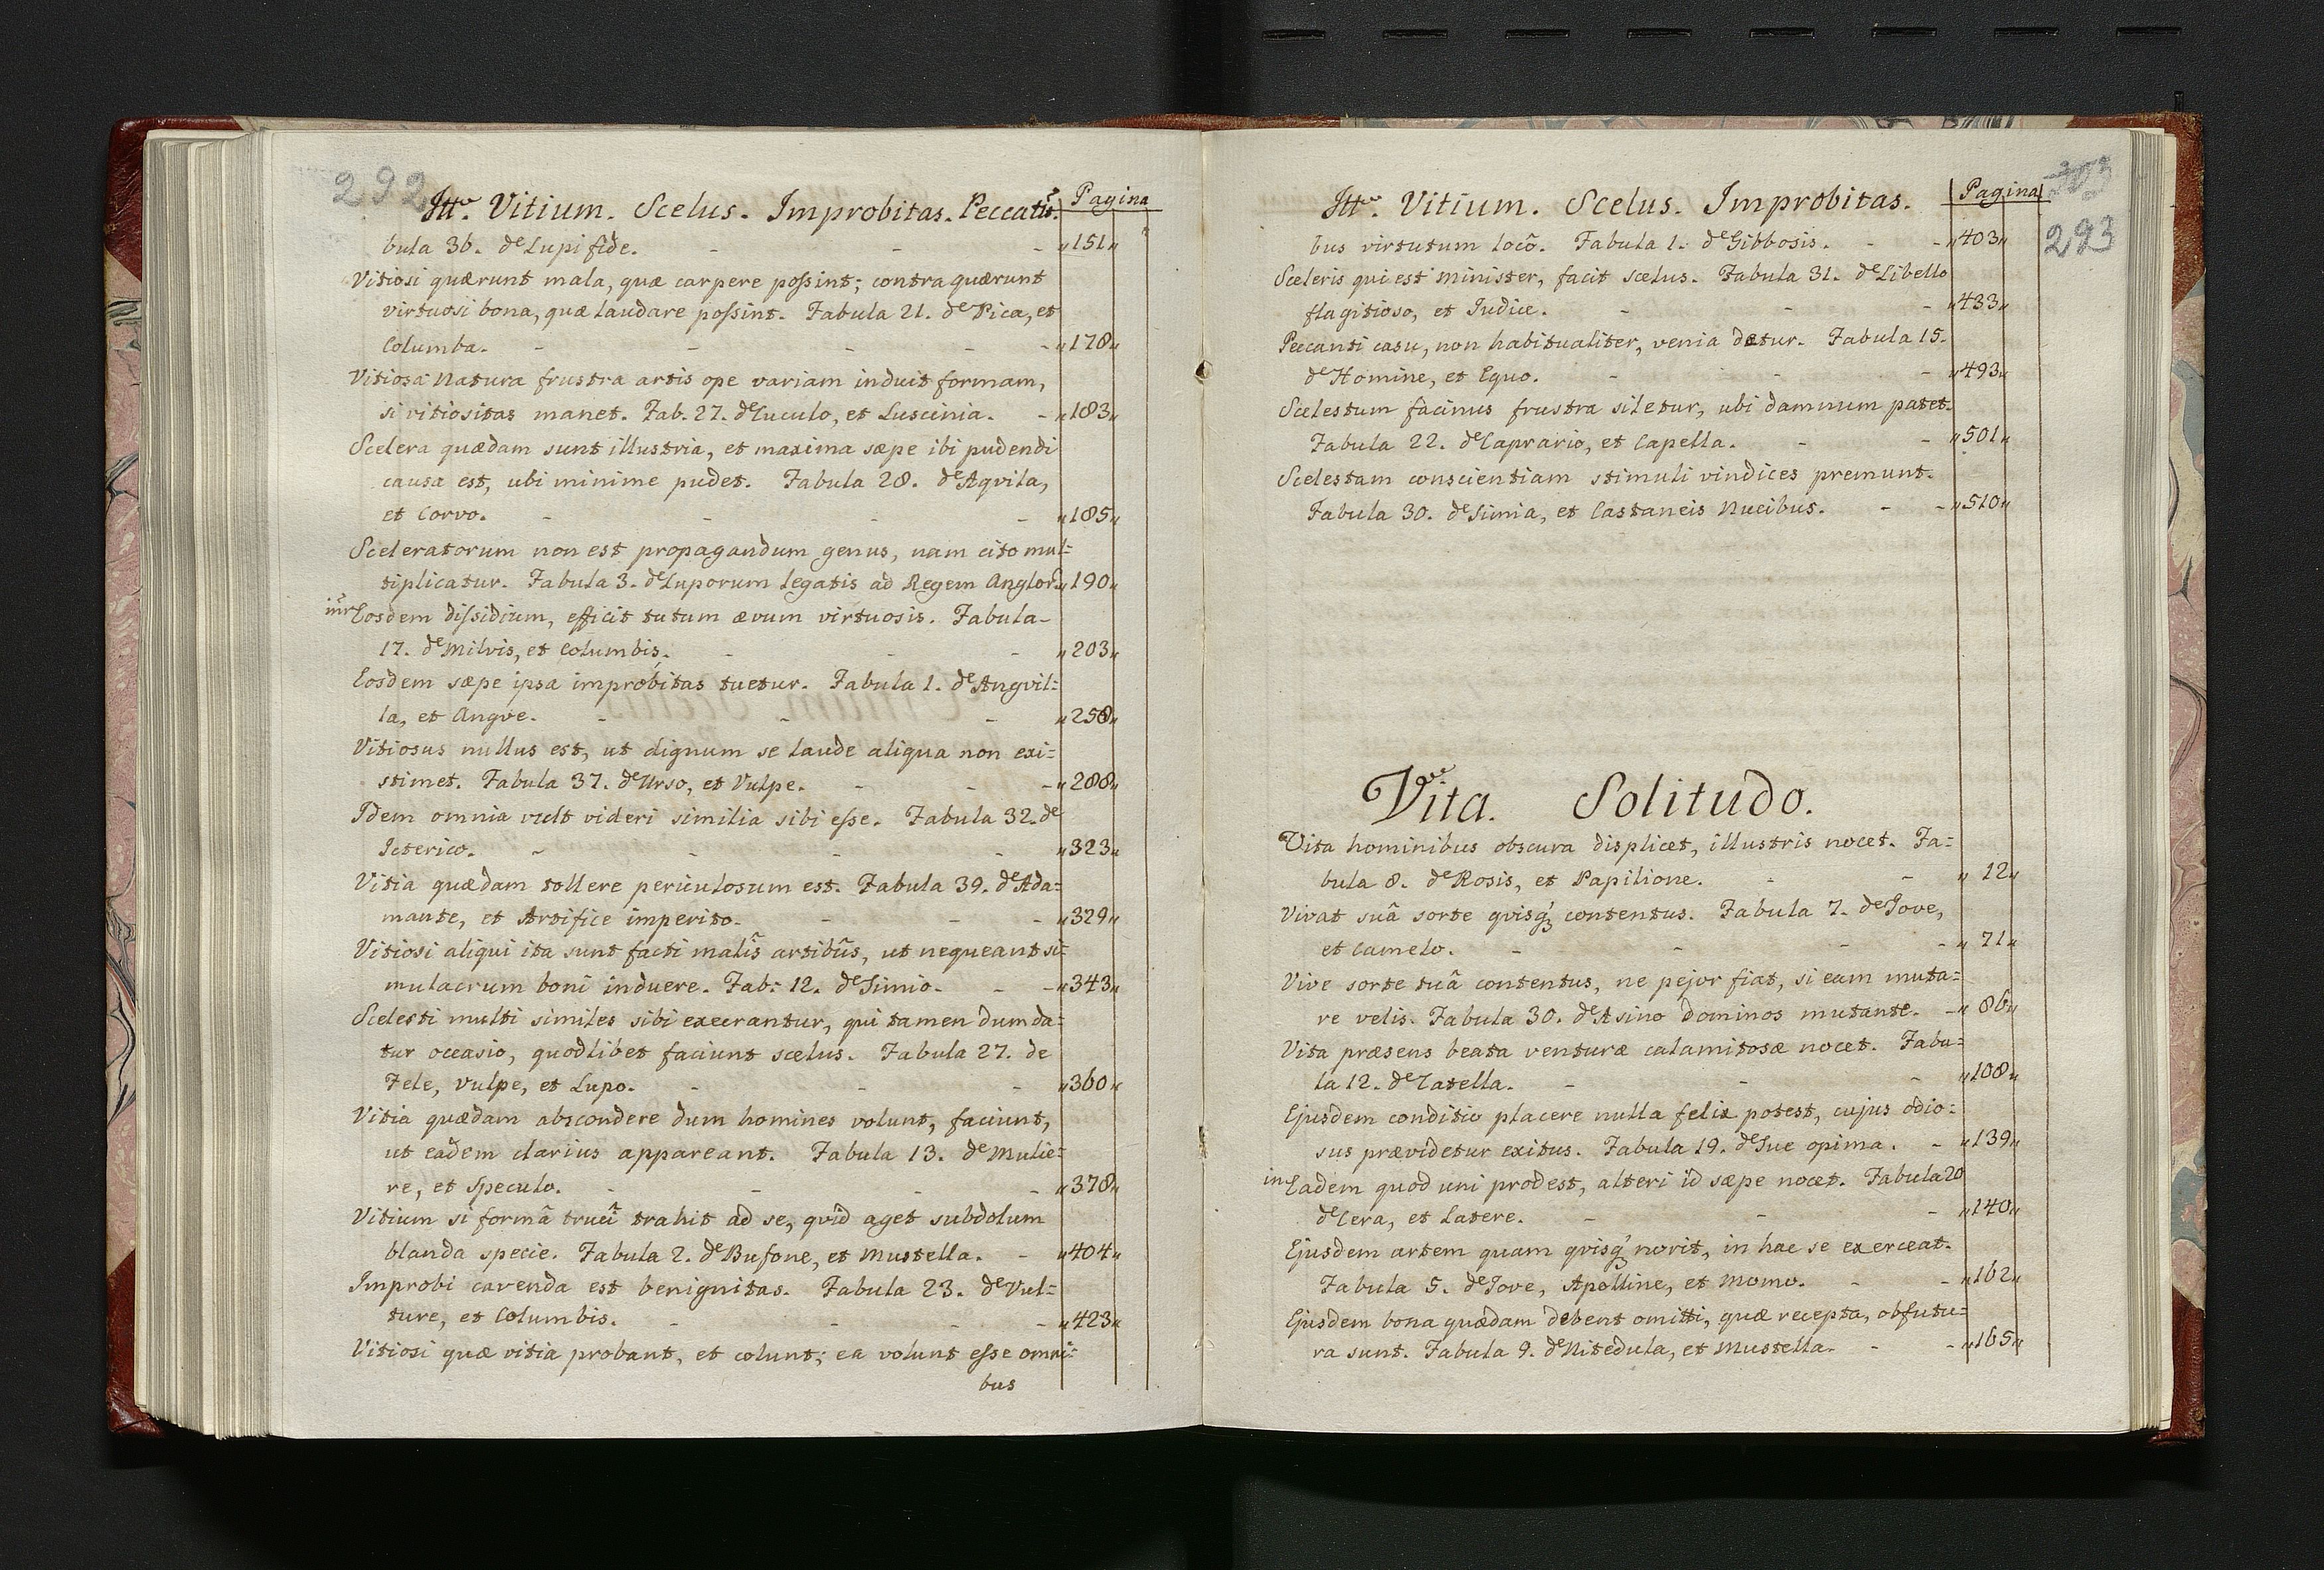 292
Ittē. Vitium. Scelus. Improbitas. Peccatū. Pagina
bula 36. de Lupi fide. - - - „151„
Vitiosi quærunt mala, quæ carpere poſsint; contra quærunt
virtuosi bona, quæ laudare poſsint. Fabula 21. de Pica, et
Columba. - - - - - „178„
Vitiosa Natura frustra artis ope variam induit formam,
si vitiositas manet. Fab. 27. de Cuculo, et Luscinia. - „183„
Scelera quædam sunt illustria, et maxima sæpe ibi pudendi
causa est, ubi minime pudet. Fabula 28. de Aqvila,
et Corvo. - - - - „185„
Sceleratorum non est propagandum genus, nam cito mul=
tiplicatur. Fabula 3. de Luporum legatis ad Regem Anglor. „190„
intr Eosdem diſsidium, efficit tutum ævum virtuosis. Fabula-
17. de Milvis, et Columbis. - - - „203„
Eosdem sæpe ipsa improbitas tuetur. Fabula 1. de Angvil=
la, et Angve. - - - „258„
Vitiosus nullus est, ut dignum se laude aliqua non exi=
stimet. Fabula 37. de Urso, et Vulpe. - - - „288„
Idem omnia vult videri similia sibi eſse. Fabula 32. de
Icterico. - - - - „323„
Vitia quædam tollere periculosum est. Fabula 39. de Ada=
mante, et Artifice imperito. - - - „329„
Vitiosi aliqui ita sunt facti malis artibus, ut nequeant si=
mulacrum boni induere. Fab: 12. de Simio. - - „343„
Scelesti multi similes sibi execrantur, qui tamen dum da=
tur occasio, quodlibet faciunt scelus. Fabula 27. de
Fele, Vulpe, et Lupo. - - - „360„
Vitia quædam abscondere dum homines volunt, faciunt,
ut eadem clarius appareant. Fabula 13. de Mulie=
re, et Speculo. - - - - „378„
Vitium si formâ truci trahit ad se, qvid aget subdolum
blanda specie. Fabula 2. de Bufone, et Mustella. - „404„
Improbi cavenda est benignitas. Fabula 23. de Vul=
ture, et Columbis. - - - - „423„
Vitiosi quæ vitia probant, et colunt; ea volunt eſse omni=
bus
293
Ittē. Vitium. Scelus. Improbitas. Pagina
293
bus virtutum locô. Fabula 1. de Gibbosis. - - „403„
Sceleris qui est Minister, facit scelus. Fabula 31. de Libello
flagitioso, et Judice. - - - „433„
Peccanti casu, non habitualiter, venia detur. Fabula 15.
de Homine, et Equo. - - - „493„
Scelestum facinus frustra siletur, ubi damnum patet.
Fabula 22. de Caprario, et Capella. - - „501„
Scelestam conscientiam stimuli vindices premunt.
Fabula 30. de Simia, et Castaneis Nucibus. - - „510„
Vita. Solitudo.
Vita hominibus obscura displicet, illustris nocet. Fa=
bula 8. de Rosis, et Papilione. - - „12„
Vivat suâ sorte qvisq́ʒ contentus. Fabula 7. de Jove,
et Camelo. - - - - „71„
Vive sorte tuâ contentus, ne pejor fiat, si eam muta=
re velis. Fabula 30. de Asino dominos mutante. - „86„
Vita præsens beata venturæ calamitosæ nocet. Fabu=
la 12. de Catella. - - - „108„
Ejusdem conditio placere nulla felix potest, cujus odio=
sus prævidetur exitus. Fabula 19. de Sue opima. - „139„
in Eadem quod uni prodest, alteri id sæpe nocet. Fabula 20
de Cera, et Latere. - - - „140„
Ejusdem artem quam qvisq́ʒ norit, in hac se exerceat.
Fabula 5. de Jove, Apolline, et Momo. - - „162„
Ejusdem bona quædam debent omitti, quæ recepta, obfutu=
ra sunt. Fabula 9. de Nitedula, et Mustella. - - „165„